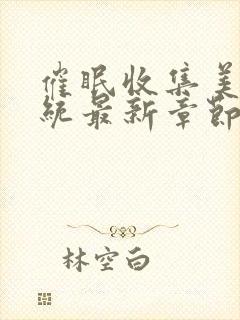 催眠收集美
统最新章节
林空白